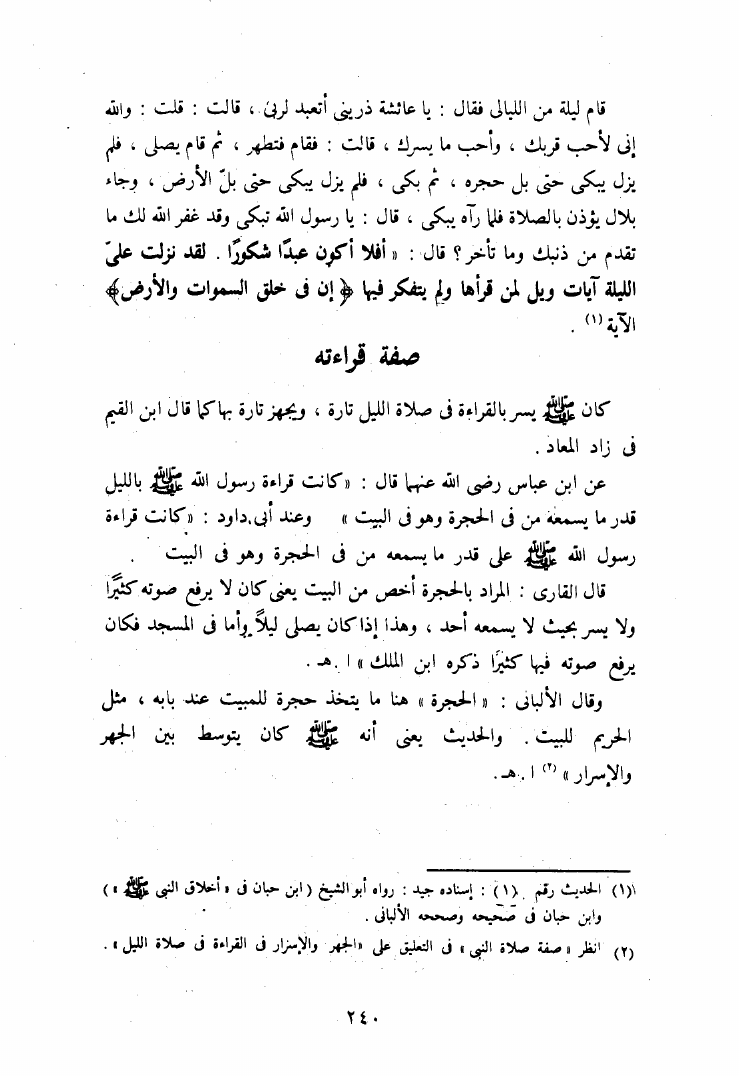 قام ليلة من الليالى فقال : يا عائشة ذرينى أتعبد لربى ، قالت : قلت : والله
إنى لأحب قربك ، وأحب ما يسرك ، قالت : فقام فتطهر ، ثم قام يصلى ، فلم
يزل يبكى حتى بل حجره ، ثم بكى ، فلم يزل يبكى حتى بلّ الأرض ، وجاء
بلال يؤذن بالصلاة فلما رآه يبكى ، قال : يا رسول الله تبكى وقد غفر الله لك ما
تقدم من ذنبك وما تأخر ؟ قال : « أفلا أكون عبدًا شكورًا . لقد نزلت علىّ
الليلة آيات ويل لمن قرأها ولم يتفكر فيها ﴿ إن فى خلق السموات والأرض ﴾
الآية (١) .
صفة قراءته
كان ﷺ يسر بالقراءة فى صلاة الليل تارة ، ويجهز تارة بها كما قال ابن القيم
فى زاد المعاد .
عن ابن عباس رضى الله عنهما قال : « كانت قراءة رسول الله ﷺ بالليل
قدر ما يسمعه من فى الحجرة وهو فى البيت » وعند أبى داود : « كانت قراءة
رسول الله ﷺ على قدر ما يسمعه من فى الحجرة وهو فى البيت .
قال القارى : المراد بالحجرة أخص من البيت يعنى كان لا يرفع صوته كثيرًا
ولا يسر بحيث لا يسمعه أحد ، وهذا إذا كان يصلى ليلاً وأما فى المسجد فكان
يرفع صوته فيها كثيرًا ذكره ابن الملك » ا . هـ .
وقال الألبانى : « الحجرة » هنا ما يتخذ حجرة للمبيت عند بابه ، مثل
الحريم للبيت . والحديث يعنى أنه ﷺ كان يتوسط بين الجهر
والإسرار » (٢) ا . هـ .
(١) الحديث رقم (١) : إسناده جيد : رواه أبو الشيخ ( ابن حبان فى « أخلاق النبى ﷺ » )
وابن حبان فى صحيحه وصححه الألبانى .
(٢) انظر « صفة صلاة النبى » فى التعليق على « الجهر والإسرار فى القراءة فى صلاة الليل » .
٢٤٠